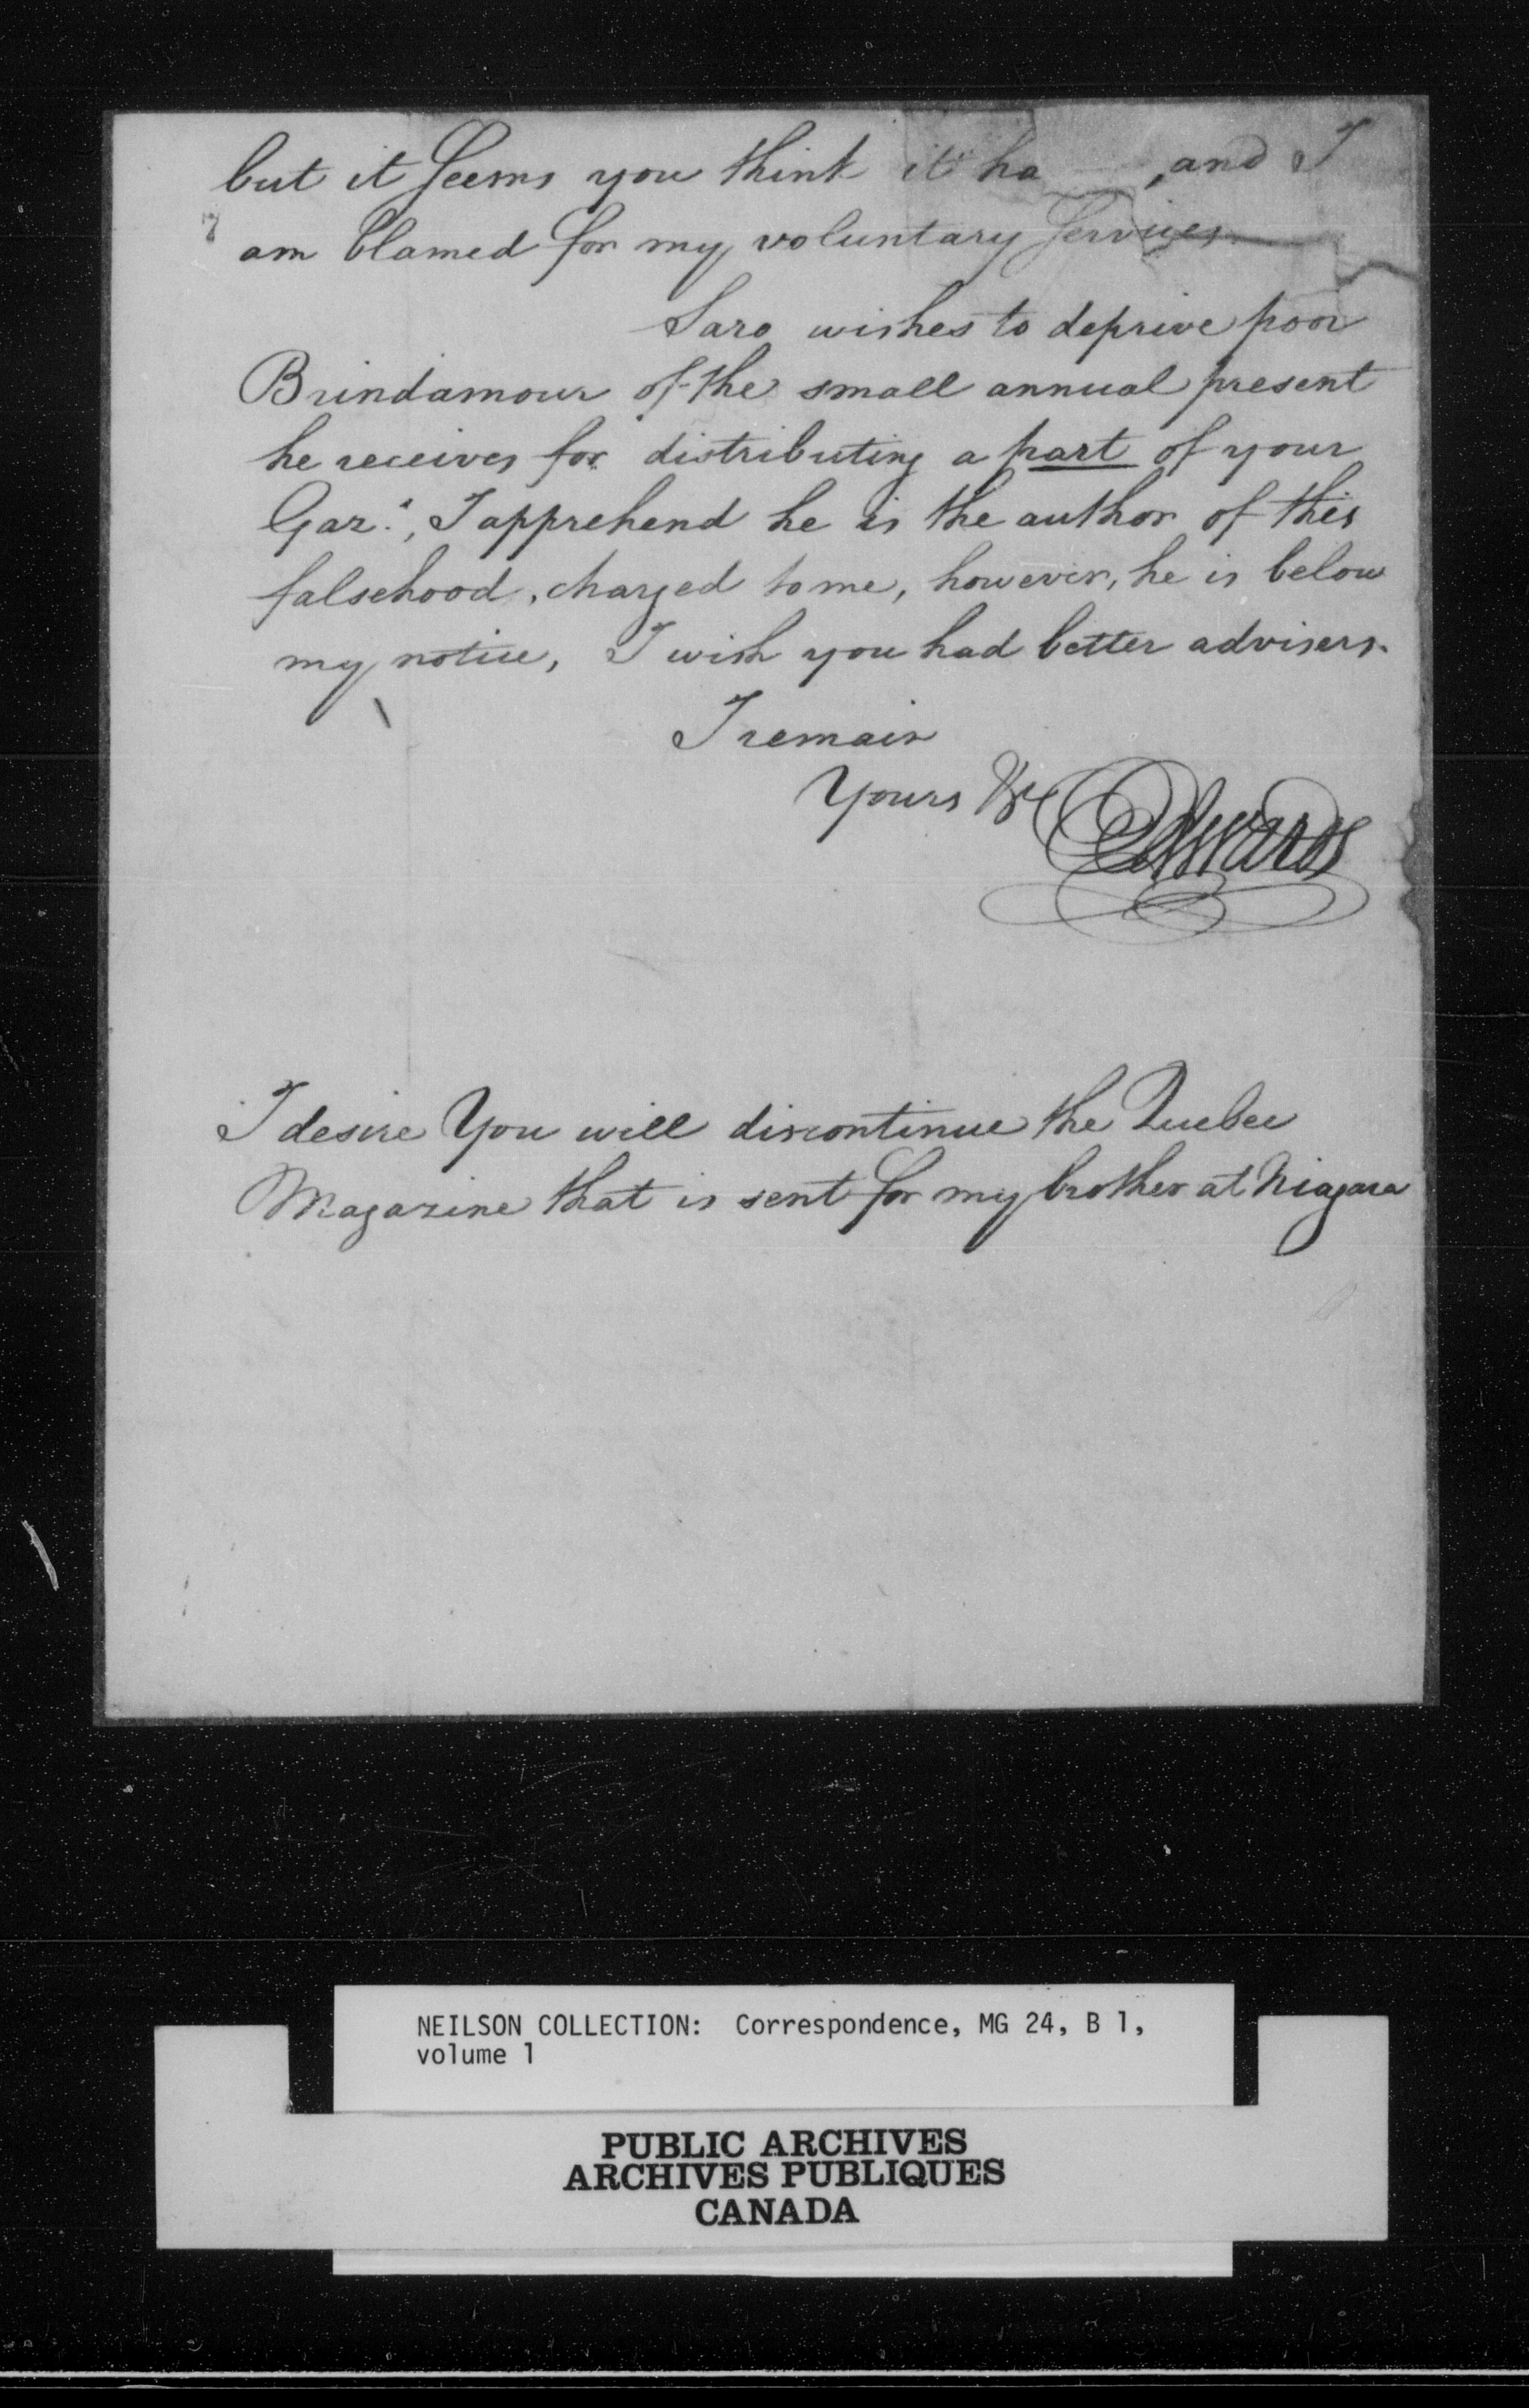 but it seems you think it ha , and I
am blamed for my voluntary services
Saro wishes to deprive poor
Brindamour of the small annual present
he receives for distributing a part of your
Gaz.s, I apprehend he is the author of this
falsehood, charged to me, however, he is below
my notice, I wish you had better advisers.
I remain
Yours &c
Edwards
I desire You will discontinue the Quebec
Magazine that is sent for my brother at Niagara
NEILSON COLLECTION: Correspondence, MG 24, B 1,
volume 1
PUBLIC ARCHIVES
ARCHIVES PUBLIQUES
CANADA